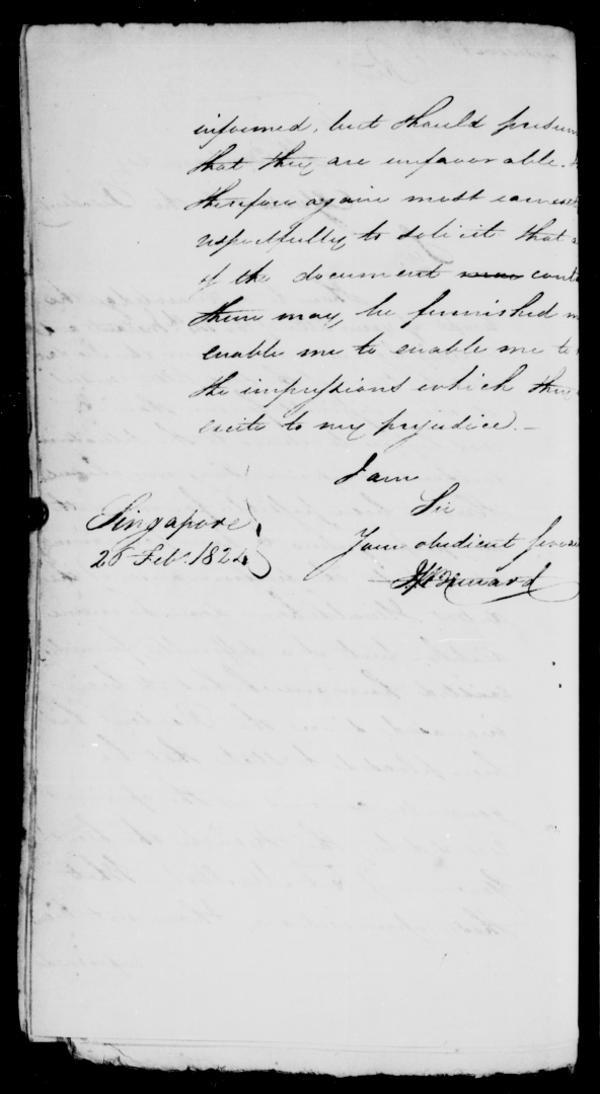 informed, but should presum
that they are unfavorable.
therefore again most earnest
respectfully to solicit that a
of the document conta
them may be furnished m
enable me to enable me to
the impressions which they
excite to my prejudice. —
I am
Sir
Singapore
Your obedient Serva
26 Feb. 1824